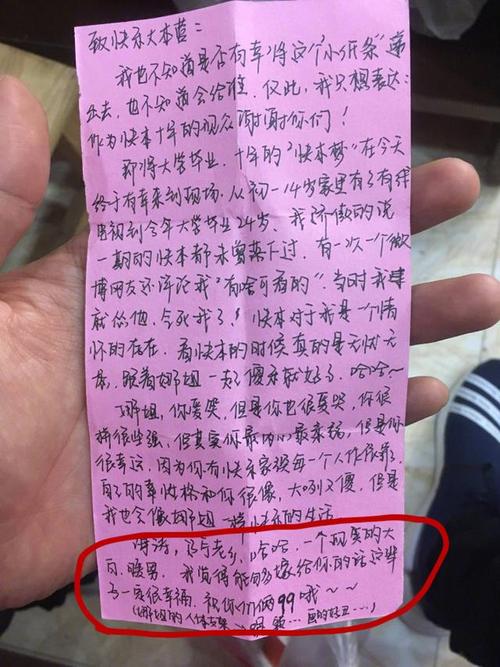 致快乐大本营:
我也不知道是否有幸将这个"小纸条"递
出去,也不知道会给谁。仅此,我只想表达:
作为快本十年的观众谢谢你们!
即将大学毕业,十年的"快本梦"在今天
终于有幸来到现场。从初一14岁家里有了有线
电视到今年大学毕业24岁,我骄傲的说
一期的快本都未曾落下过,有一次一个微
博网友还评论我"有啥可看的",当时我
就怼他,气死我了!快本对于我是一个情
怀的存在,看快本的时候真的是无忧无
虑,跟着娜姐一起傻乐就好了,哈哈~
娜姐,你爱笑,但是你也很爱哭,你很
但其实你最 但是你
很幸运,因为你有快乐家族每一个人作依靠,
自己的幸 性格和你很像,大咧又傻,但是
我也会像娜姐一样快乐的生活
涛涛, 老乡,哈哈,一个现实的大
白、暖男,我觉得能够嫁给你的话这辈
子一定很幸福,祝你们俩99哦~~
(娜姐的人体支架